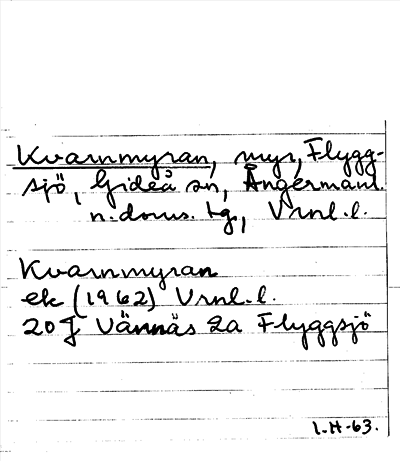 Kvarnmyran, myr, Flygg-
sjö, Gideå sn, Ångermanl.
n. doms. tg., Vrnl. l.
Kvarnmyran
ek (1962) Vrnl. l.
20 J Vännäs 2a Flyggsjö
I.H-63.